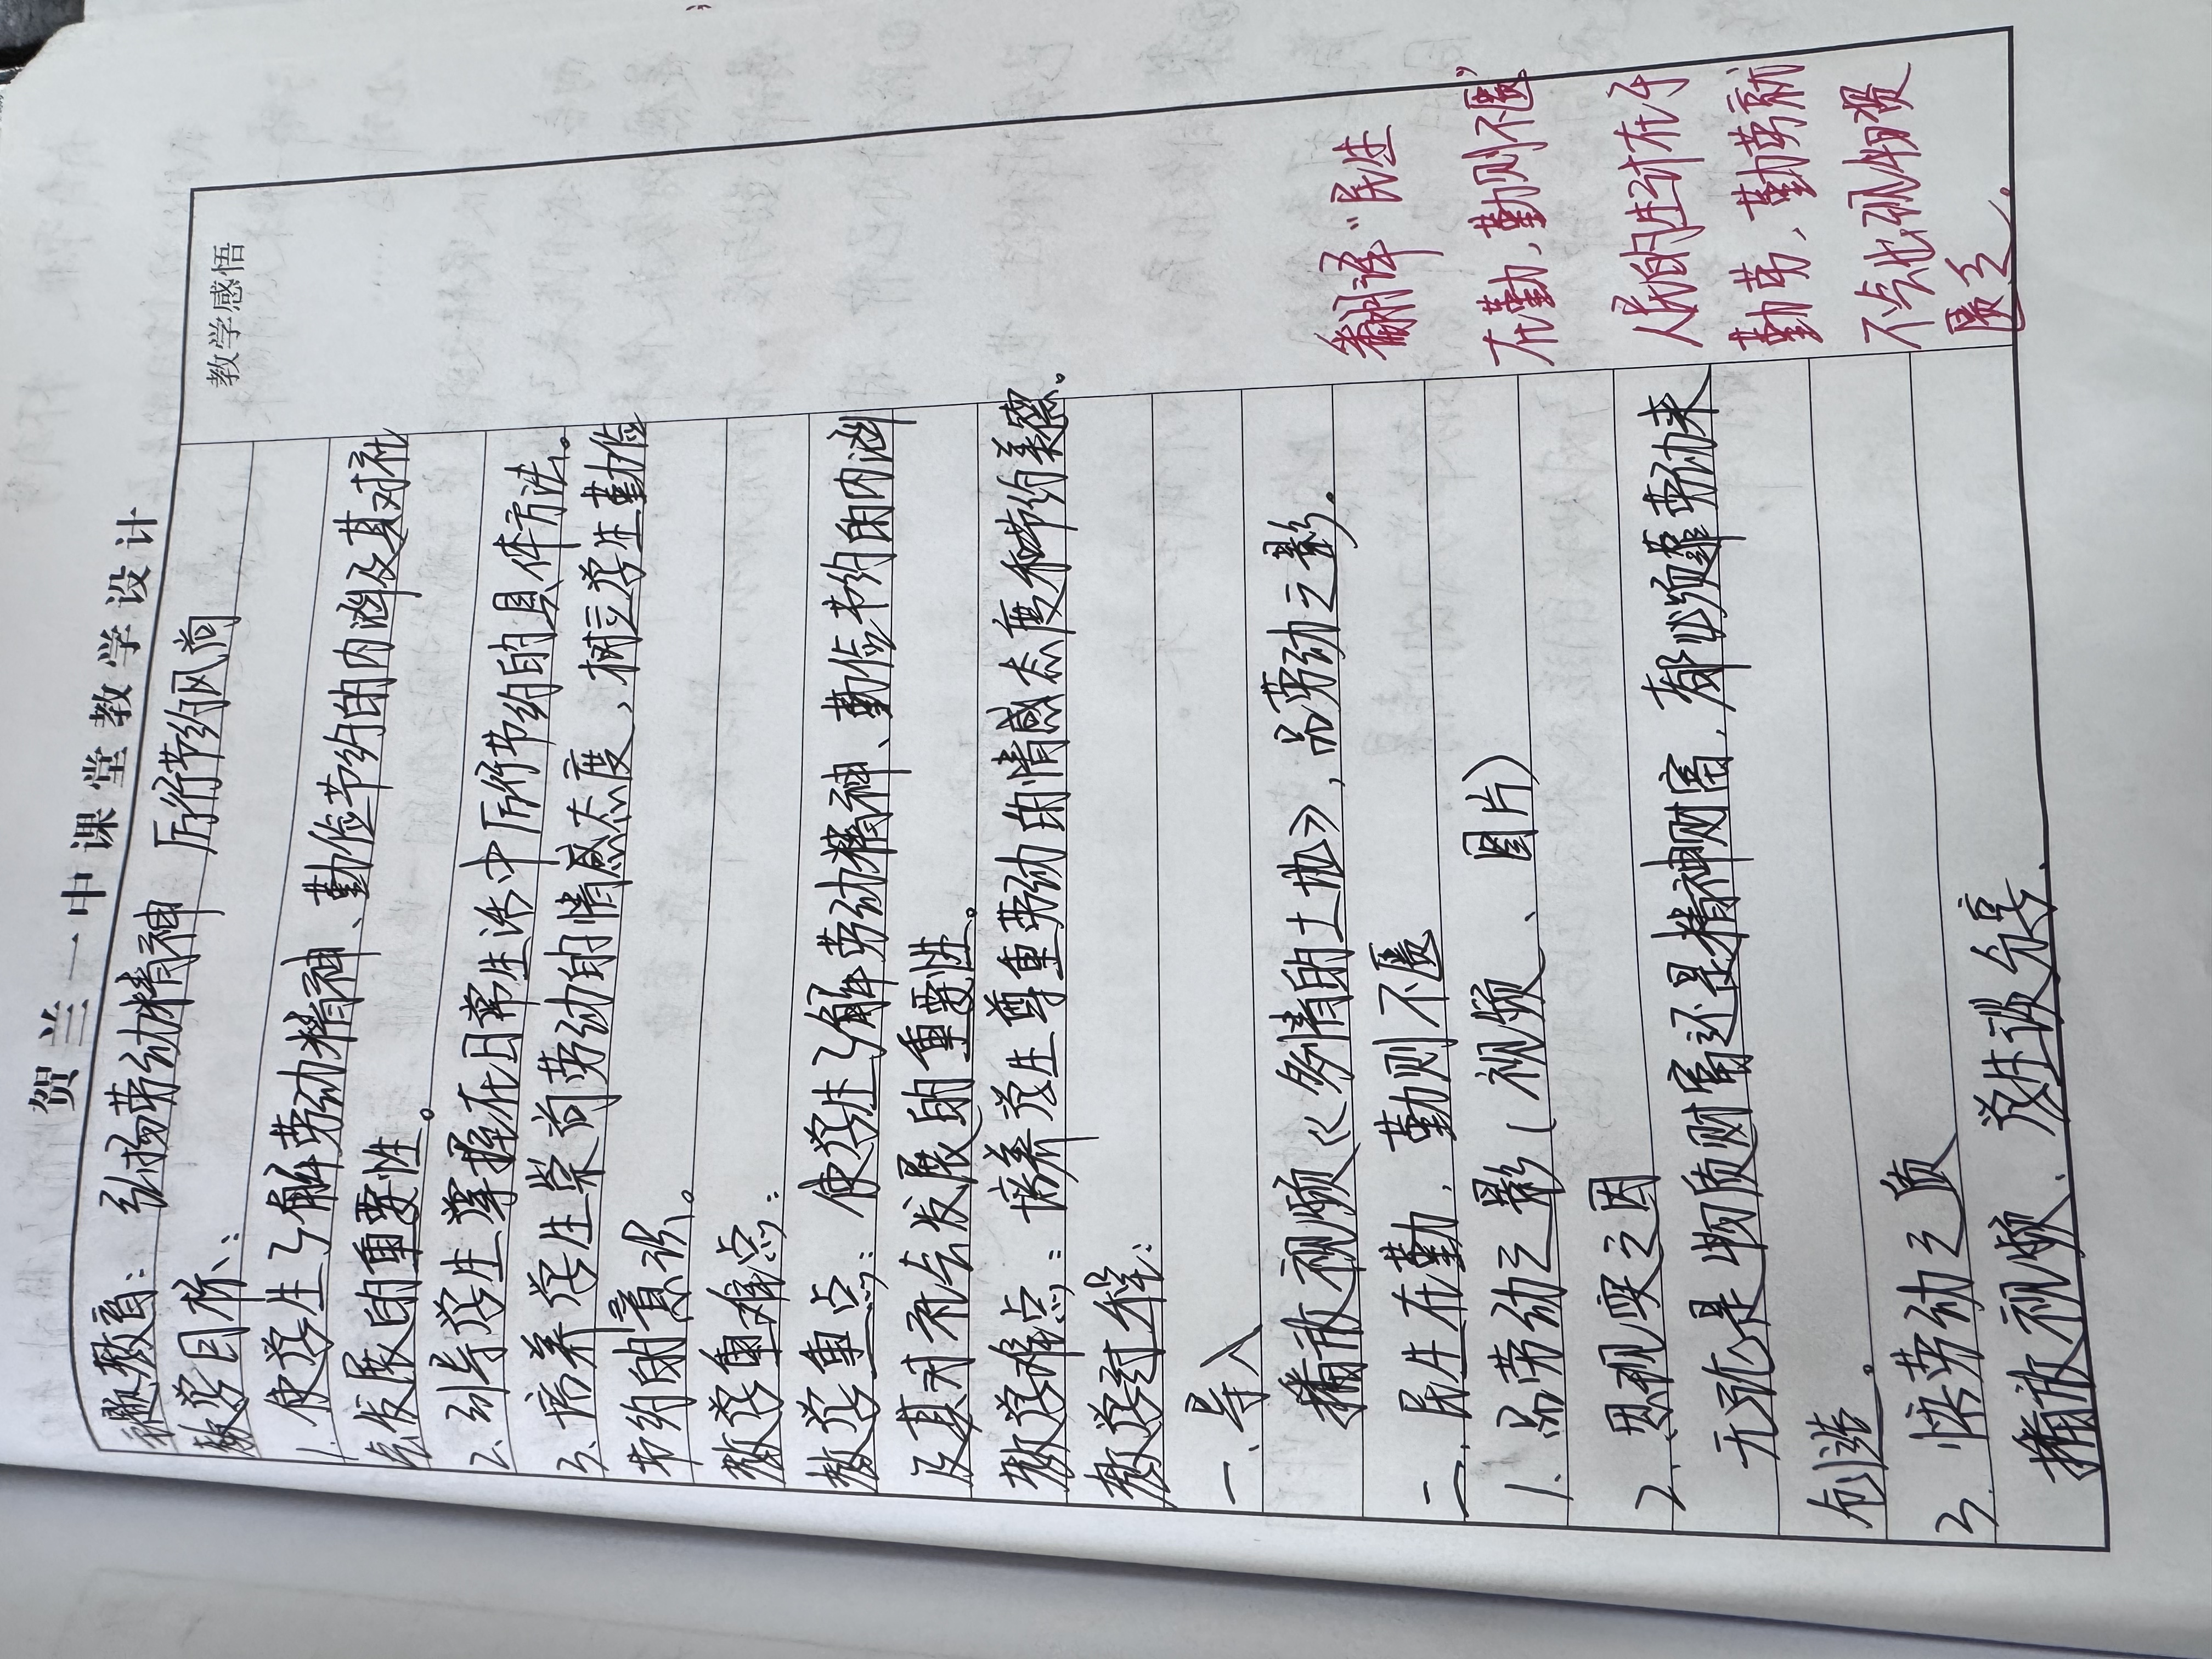 贺兰一中课堂教学设计
主题教育：弘扬劳动精神 厉行节约风尚
教学感悟
教学目标：
1. 使学生了解劳动精神、勤俭节约的内涵及其对社
会发展的重要性。
2. 引导学生掌握在日常生活中厉行节约的具体方法。
3. 培养学生崇尚劳动的情感态度，树立学生勤俭
节约的意识。
教学重难点：
教学重点：使学生了解劳动精神、勤俭节约的内涵
及其对社会发展的重要性。
教学难点：培养学生尊重劳动的情感态度和节约美德。
教学过程：
一、导入
播放视频《多情的土地》，品劳动之影。
二、民生在勤，勤则不匮
1. 品劳动之影（视频、图片）
2. 思视受之因
无论是物质财富还是精神财富，都必须靠劳动来
创造。
3. 悟劳动之质
播放视频、学生谈分享。
翻译“民生
在勤，勤则不匮”
人民的生计在于
勤劳，勤劳就
不会出现物资
匮乏。